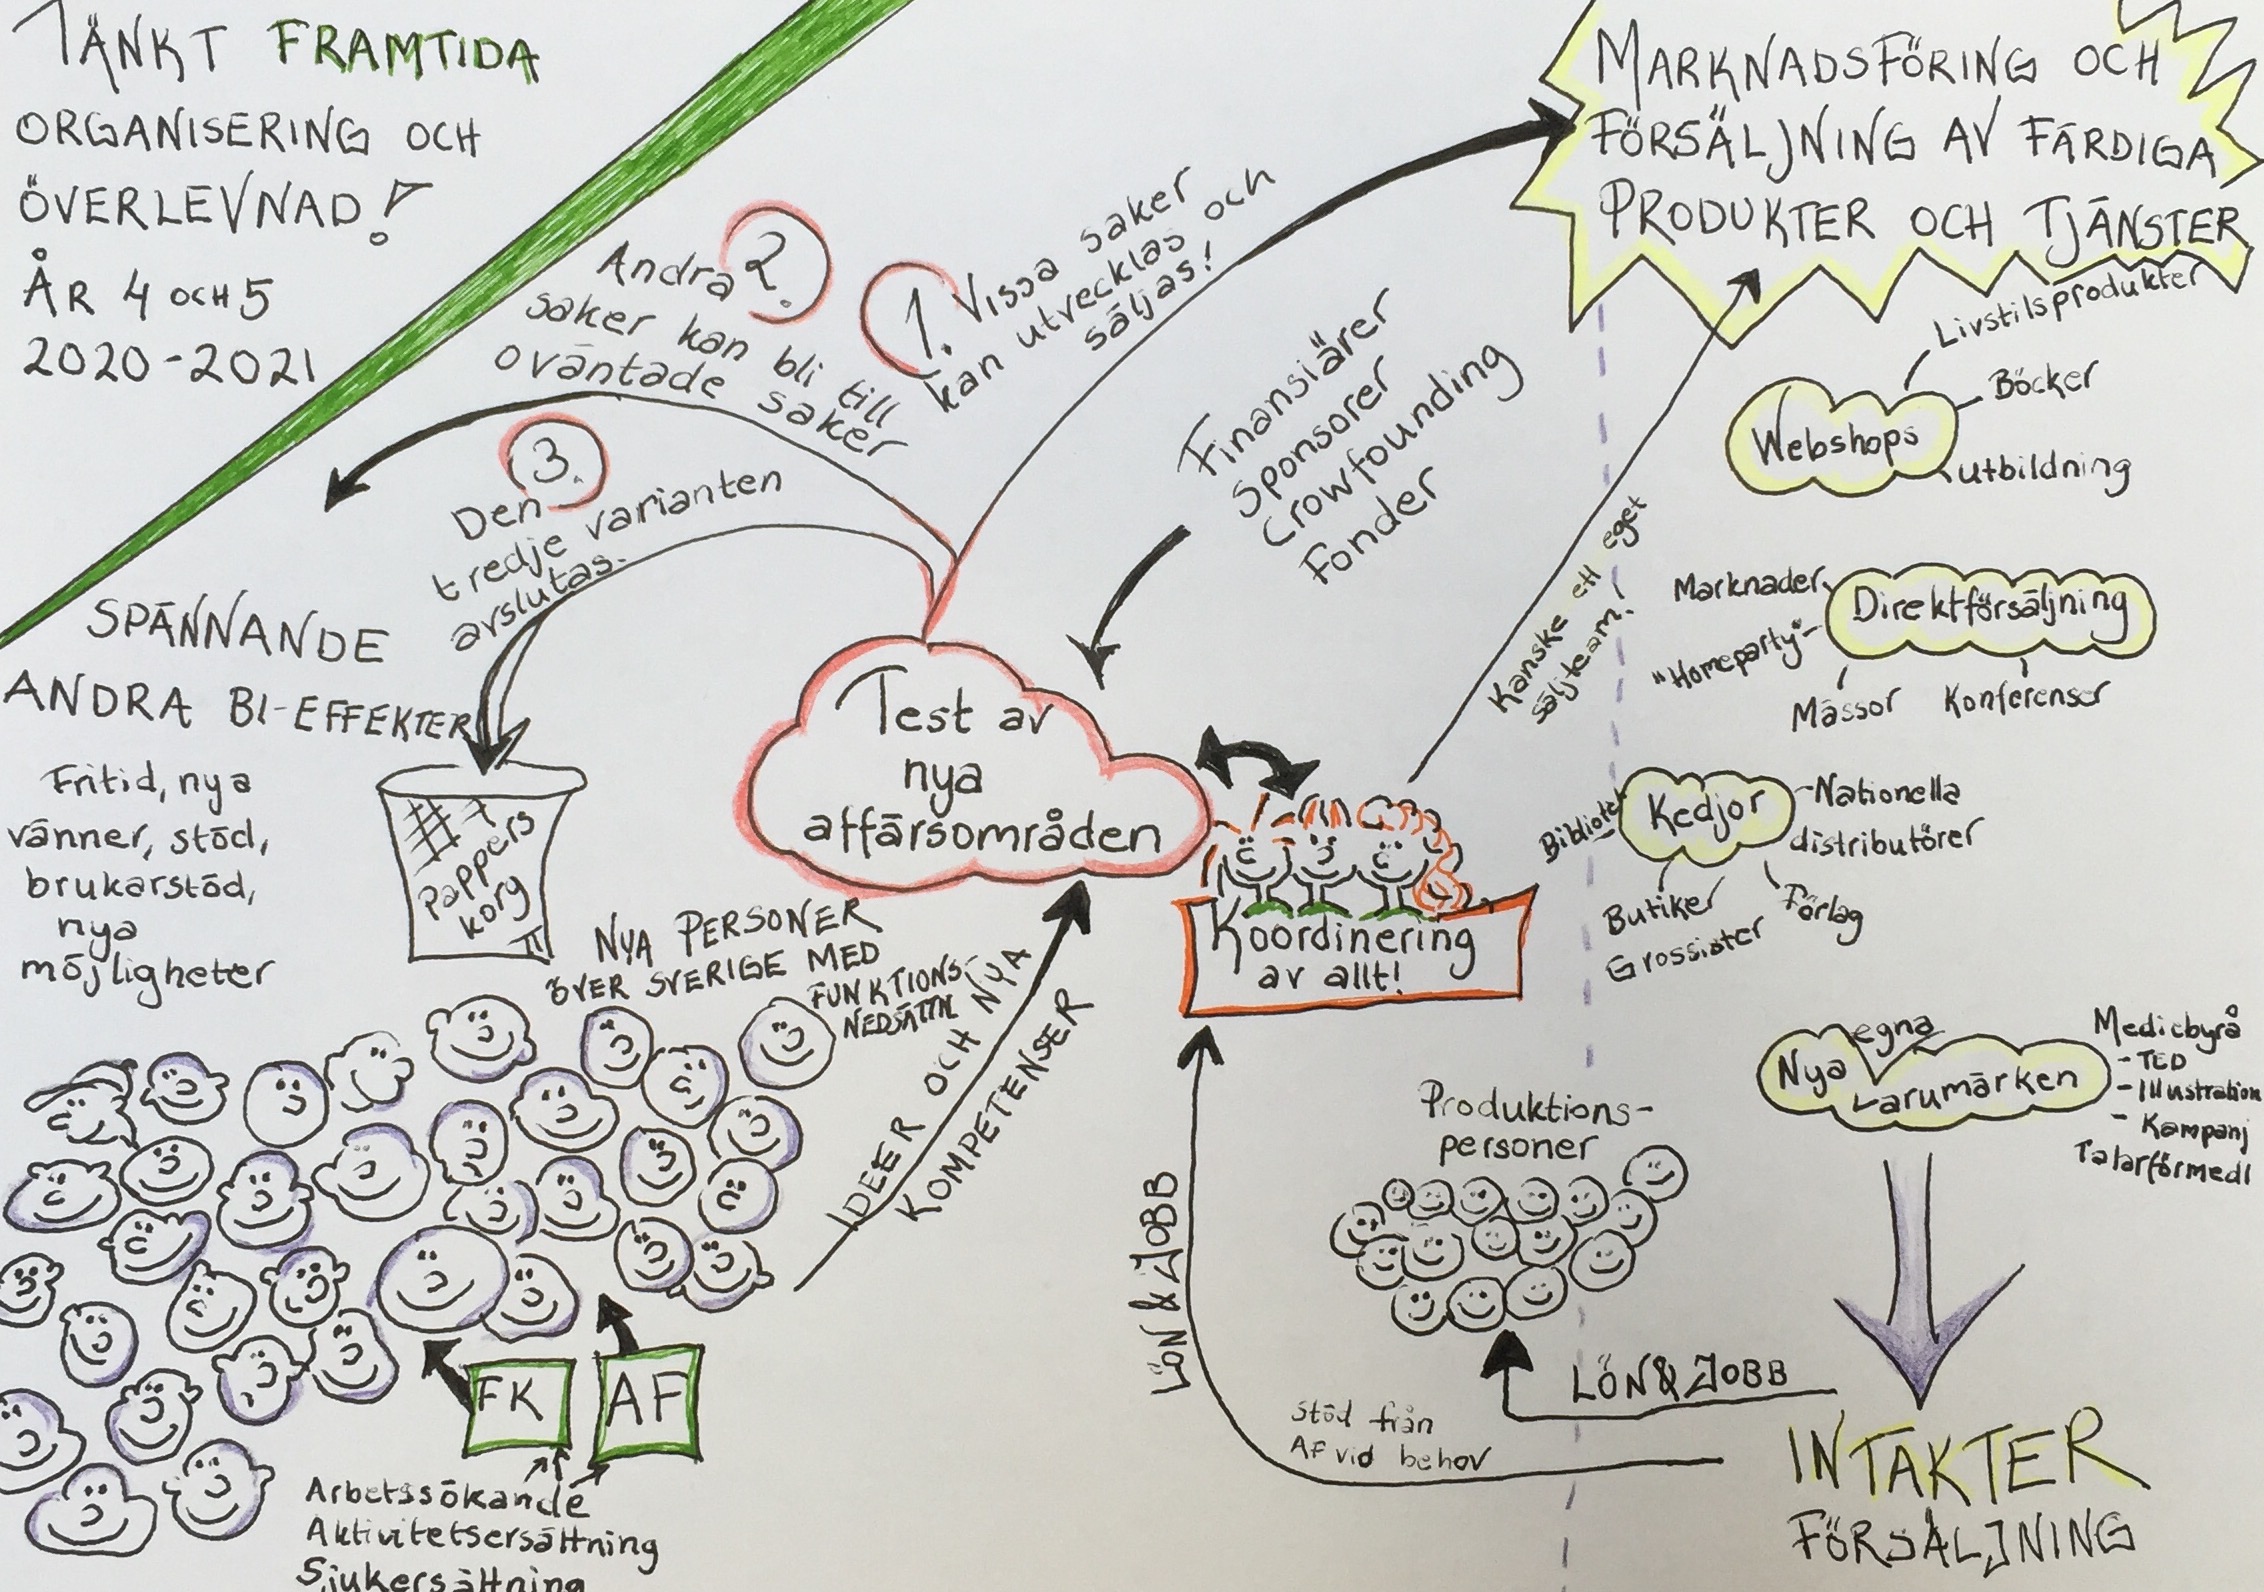 TÄNKT FRAMTIDA
ORGANISERING OCH
ÖVERLEVNAD!
ÅR 4 OCH 5
2020-2021
MARKNADSFÖRING OCH
FÖRSÄLJNING AV FÄRDIGA
PRODUKTER OCH TJÄNSTER
1. Vissa saker
kan utvecklas och
säljas!
Andra 2.
saker kan bli till
oväntade saker
3.
Den
tredje varianten
avslutas.
Finansiärer
Sponsorer
Crowfounding
Fonder
Kanske ett eget
säljteam!
Livstilsprodukter
Böcker
Webshops
utbildning
Marknader
Direktförsäljning
"Homeparty"
Mässor
Konferenser
Bibliotek
Kedjor
-Nationella
distributörer
Butiker
Förlag
Grossister
Nya egna
Varumärken
Mediebyrå
- TED
- Illustration
- Kampanj
Talarförmedl
SPÄNNANDE
ANDRA BI-EFFEKTER
Fritid, nya
vänner, stöd,
brukarstöd,
nya
möjligheter
Pappers
korg
Test av
nya
affärsområden
Koordinering
av allt!
NYA PERSONER
ÖVER SVERIGE MED
FUNKTIONS-
NEDSÄTTN
IDEER OCH NYA
KOMPETENSER
Produktions-
personer
LÖN & JOBB
LÖN & JOBB
Stöd från
AF vid behov
INTÄKTER
FÖRSÄLJNING
FK
AF
Arbetssökande
Aktivitetsersättning
Sjukersättning